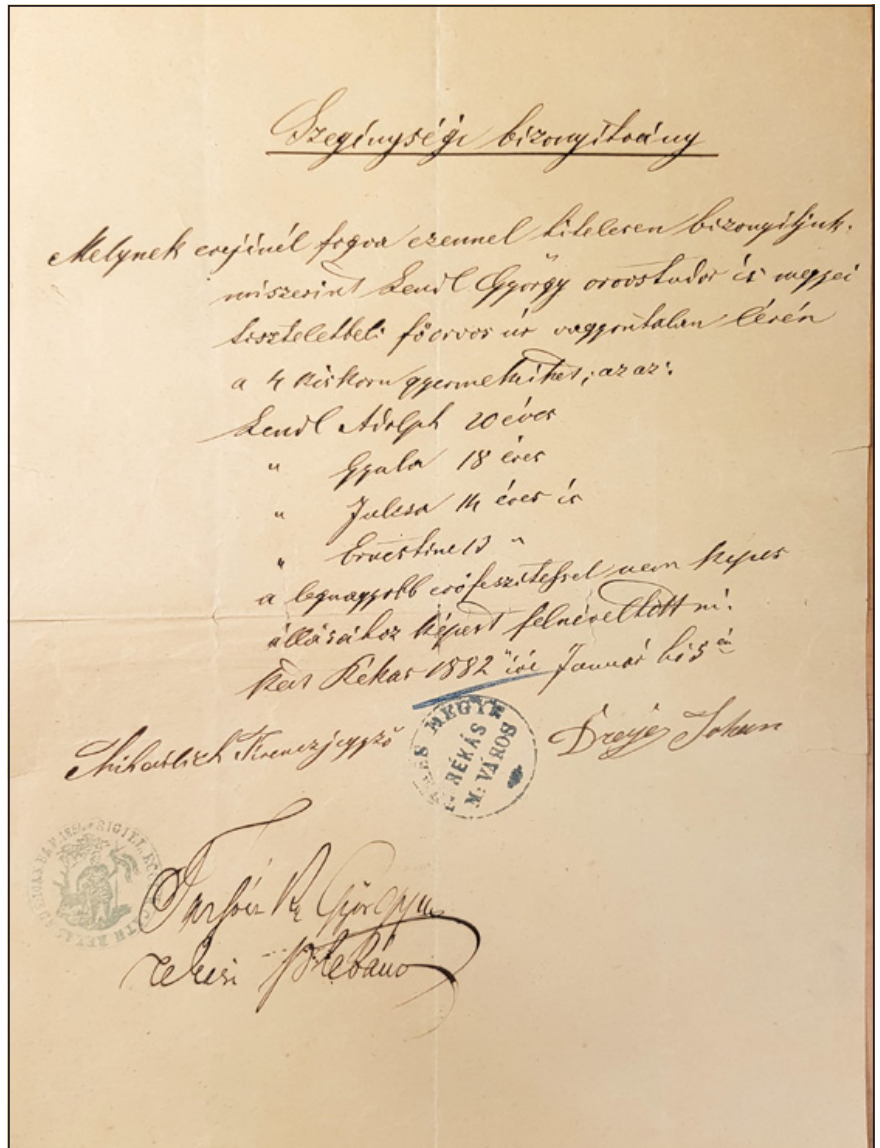 Szegénységi bizonyitvány
Melynek erejénél fogva ezennel hitelesen bizonyitjuk,
miszerint Lendl György orvostudor és megyei
tiszteletbeli főorvos úr vagyontalan lévén
a 4 kiskoru gyermekeihet, az az:
Lendl Adolph 20 éves
" Gyula 18 éves
" Julcsa 14 éves és
" Ernestine 13 "
a legnagyobb erőfeszitéssel nem képes
állásához képest felneveltetni.
Kelt Rékas 1882 évi Január hó 5én
Ferencz jegyző
TEMES MEGYE
RÉKÁS
M: VÁROS
Johann
György
rékási plebános